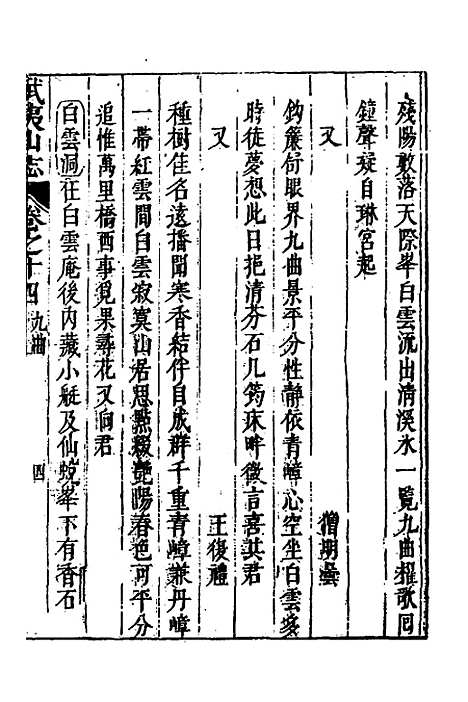 殘陽數落天際峯白雲流出清溪水一覽九曲櫂歌囘
鐘聲疑自琳宮起
又　僧期曇
鈎簾舒眼界九曲景平分性靜依青嶂心空坐白雲多
時徒夢想此日挹清芬石几筠床畔微言喜共君
又　王復禮
種樹佳名遠播聞寒香結伴自成群千重青嶂兼丹嶂
一帶紅雲間白雲寂寞山居思點綴艷陽春色可平分
追惟萬里橋西事覓果尋花又向君
白雲洞在白雲庵後内藏小艇及仙蛻峯下有香石
武夷山志　卷之十四　九曲　四